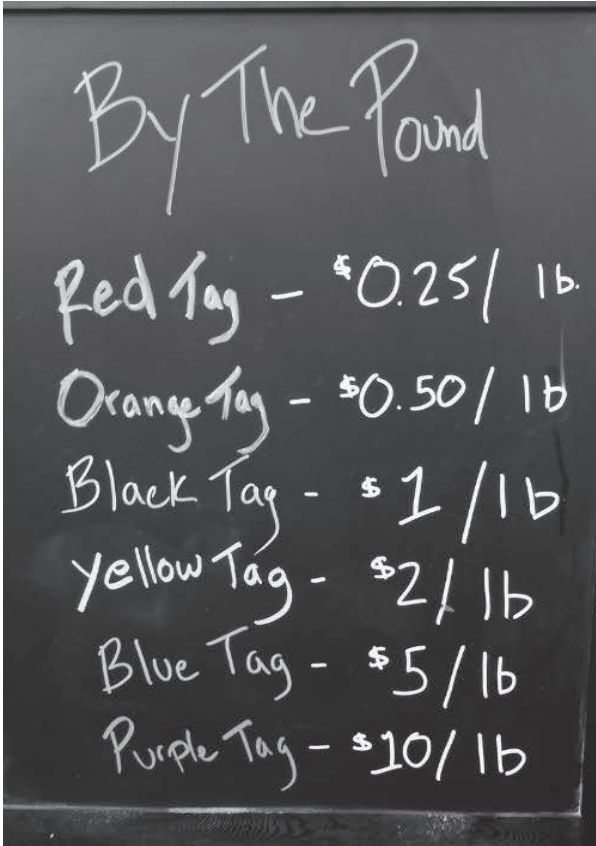 By The Pound
Red Tag - $0.25/ lb.
Orange Tag - $0.50/ lb
Black Tag - $1/lb
Yellow Tag - $2/ lb
Blue Tag - $5/lb
Purple Tag - $10/ lb